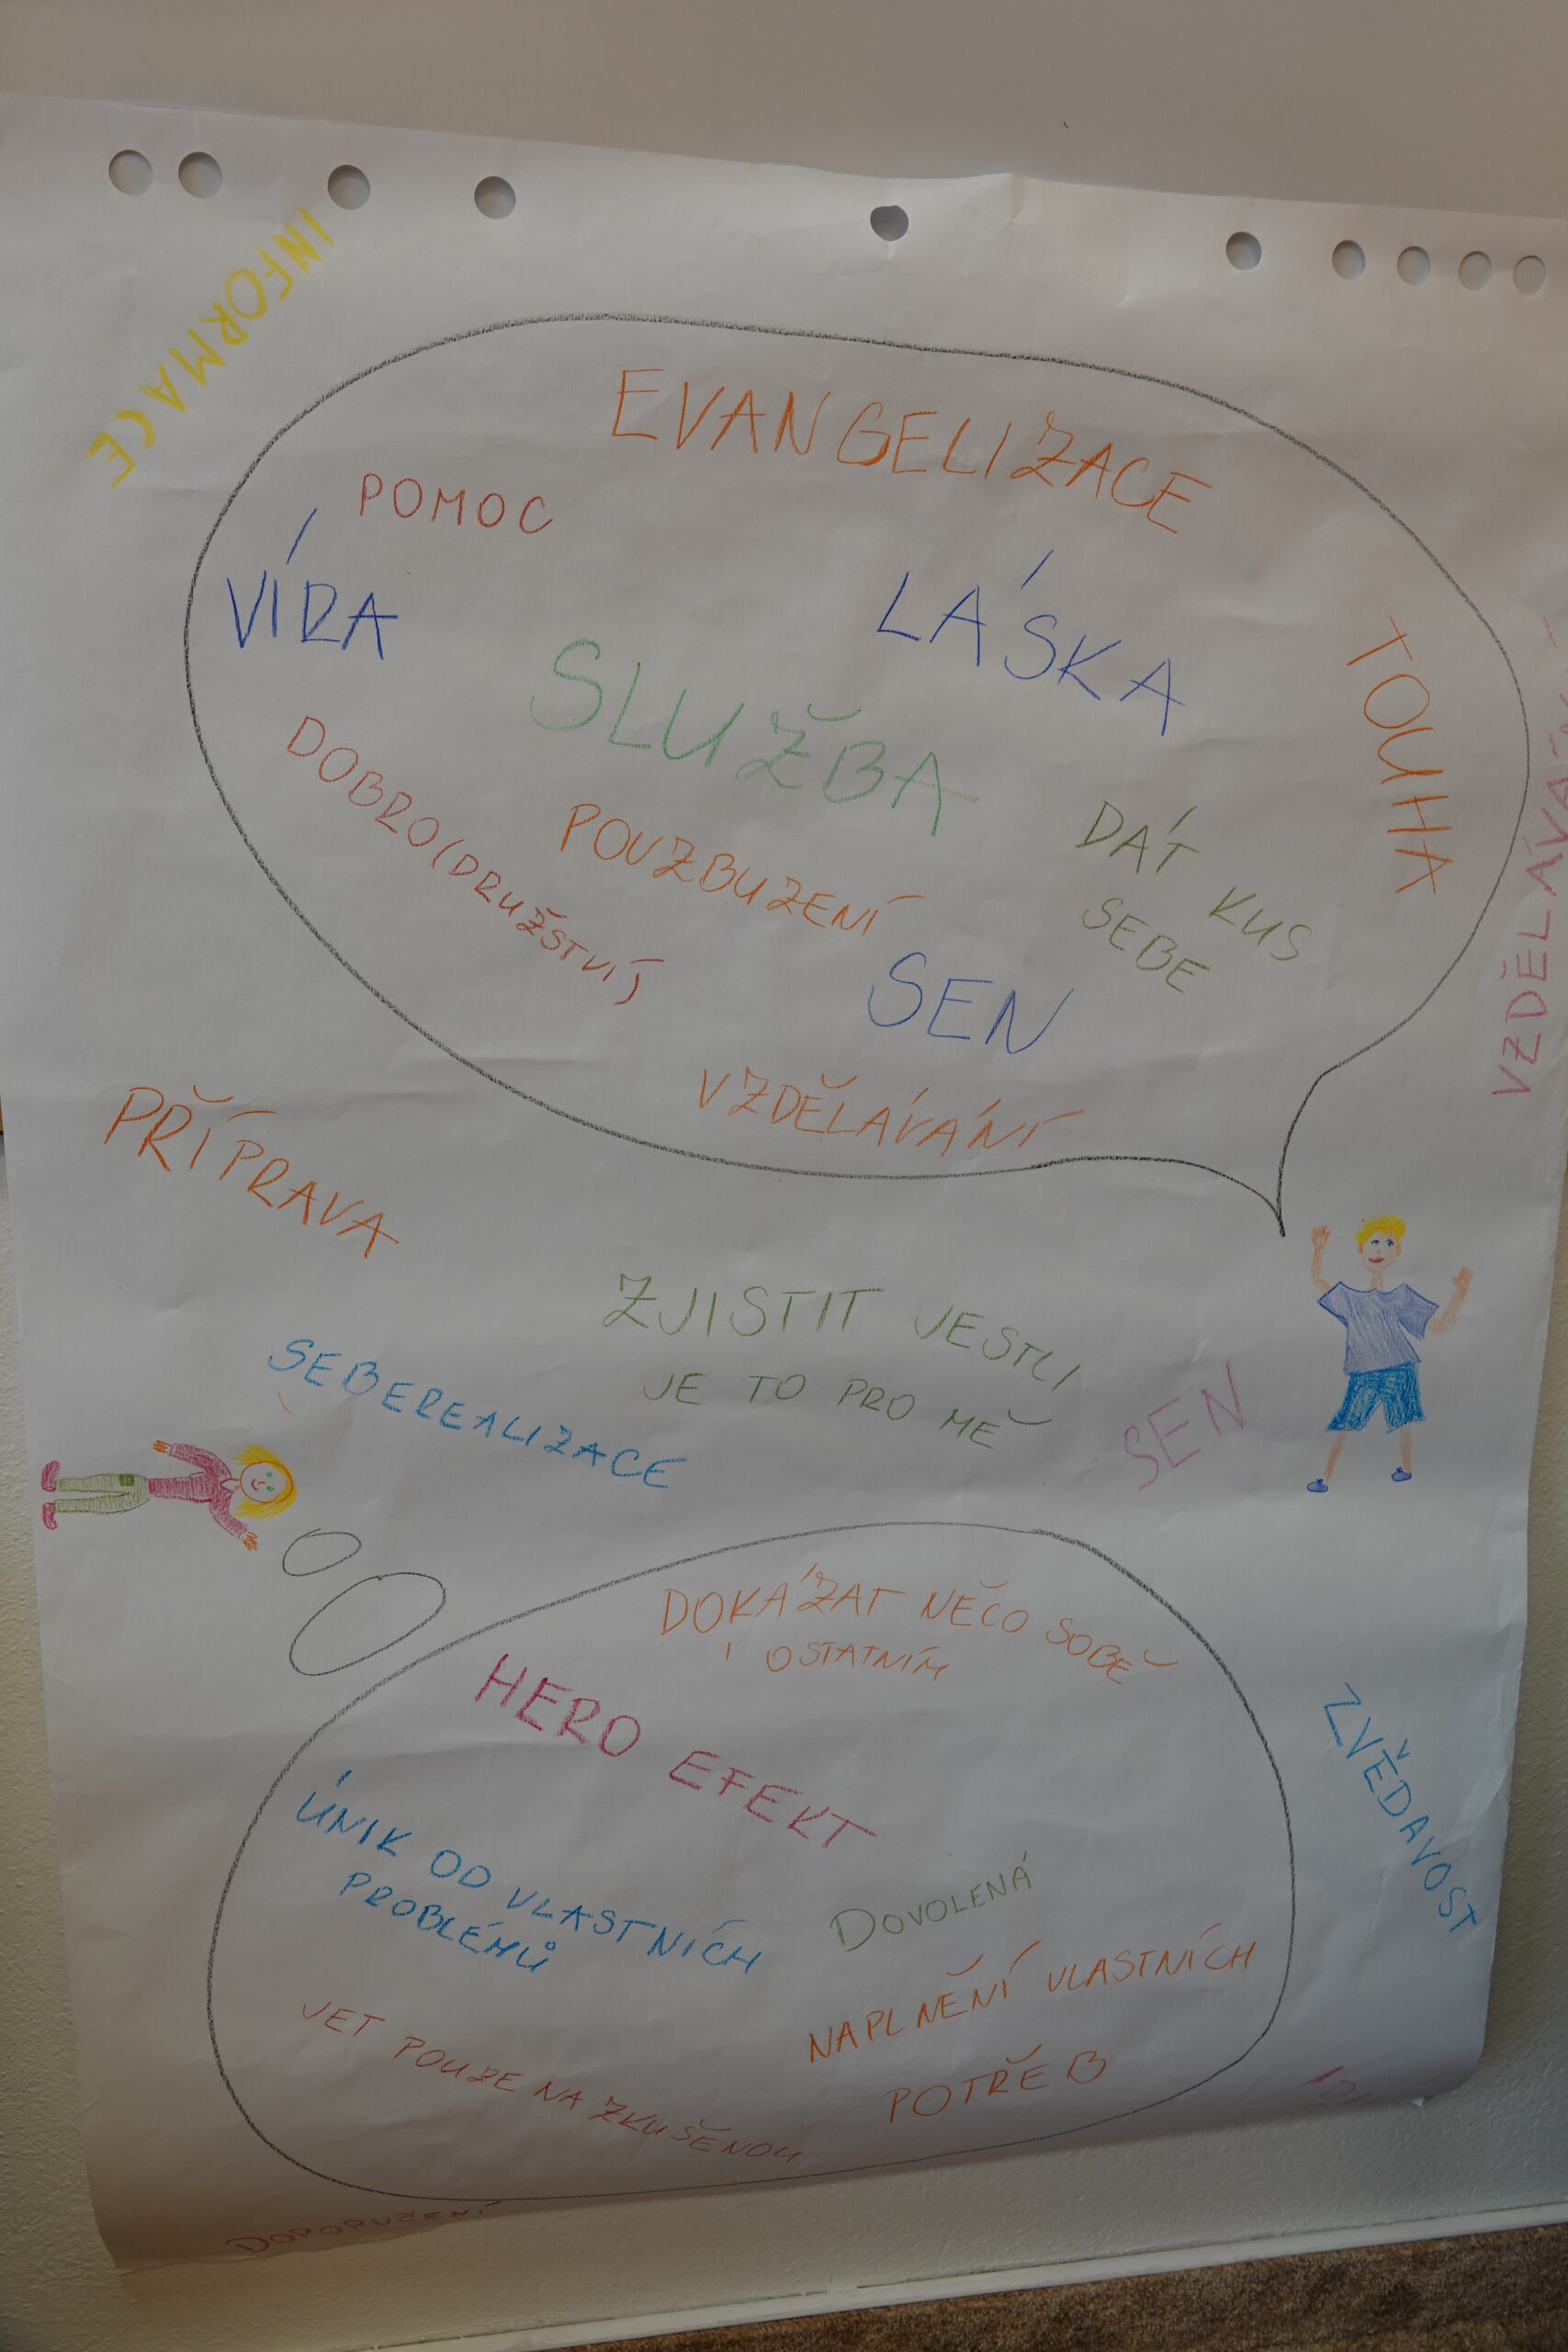 INFORMACE
EVANGELIZACE
POMOC
VÍRA
LÁSKA
TOUHA
SLUŽBA
DOBRO(DRUŽSTVÍ)
POVZBUZENÍ
DÁT KUS
SEBE
SEN
VZDĚLÁVÁNÍ
PŘÍPRAVA
ZJISTIT JESTLI
JE TO PRO MĚ
SEBEREALIZACE
SEN
DOKÁZAT NĚCO SOBĚ
I OSTATNÍM
HERO EFEKT
ZVĚDAVOST
ÚNIK OD VLASTNÍCH
PROBLÉMŮ
DOVOLENÁ
NAPLNĚNÍ VLASTNÍCH
POTŘEB
JET POUZE NA ZKUŠENOU
DOPORUČENÍ